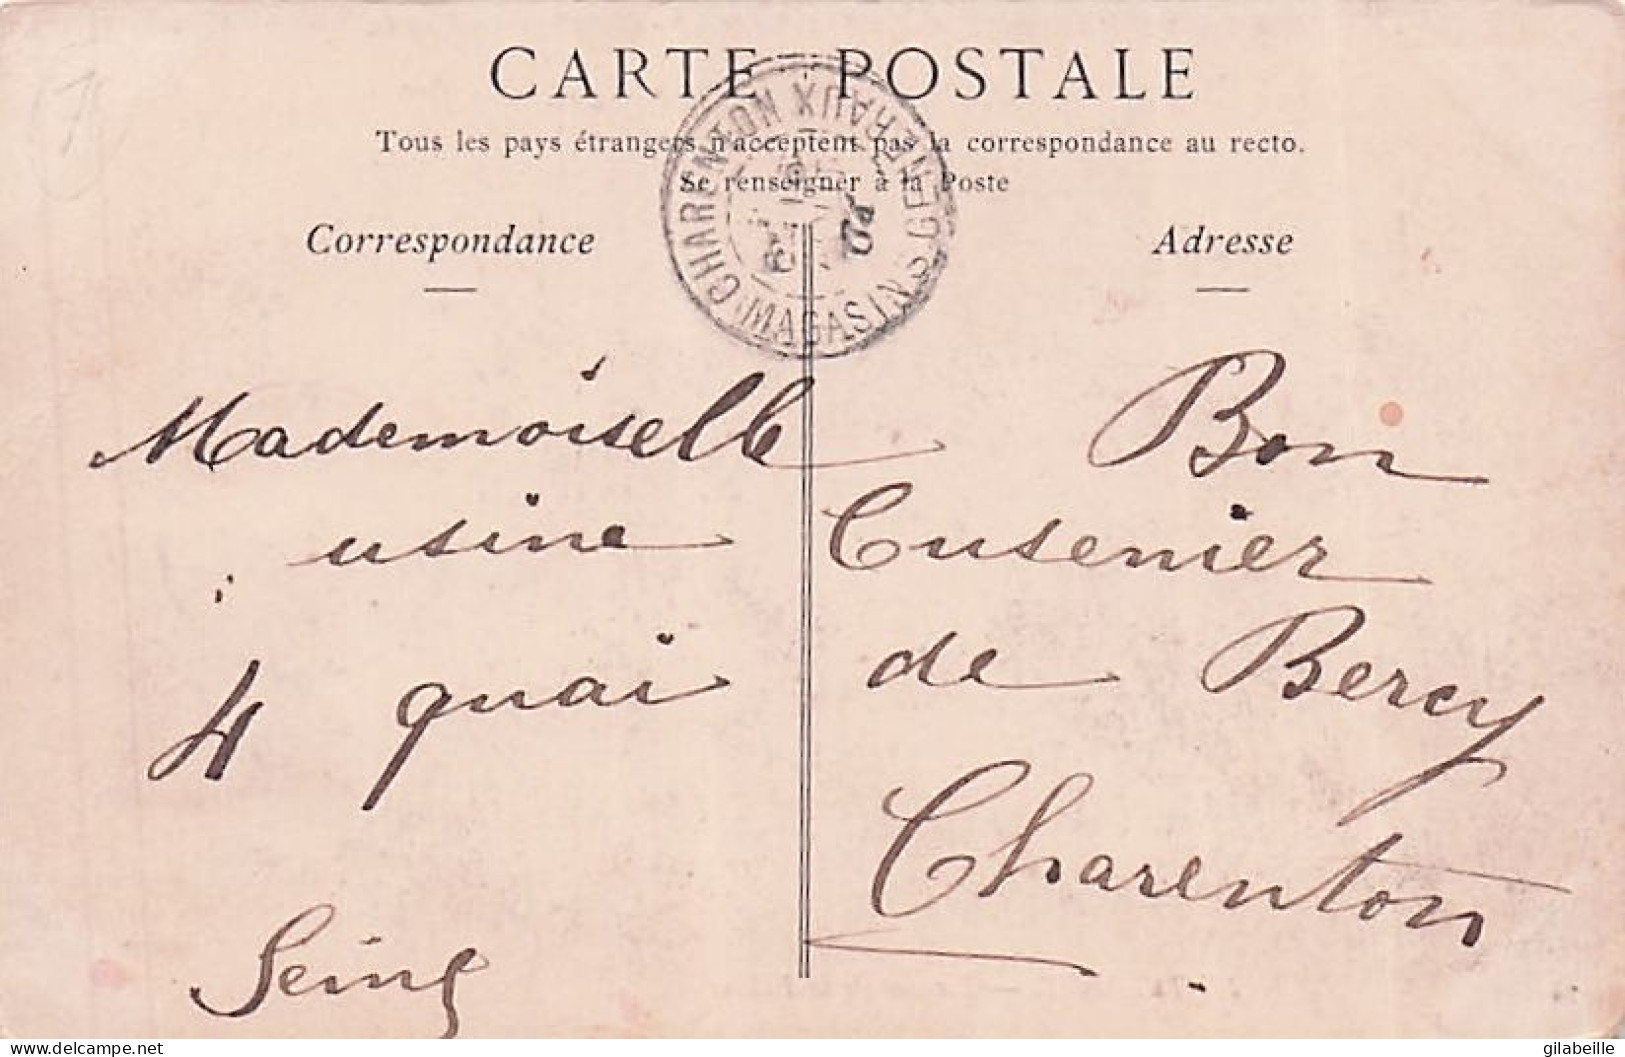 CARTE POSTALE
Tous les pays étrangers n'acceptent pas la correspondance au recto.
Se renseigner à la Poste
Correspondance Adresse
CHARENTON MAGASINS GENERAUX
Mademoiselle Bon
usine Cusenier
4 quai de Bercy
Charenton
Seine
www.delcampe.net gilabeille